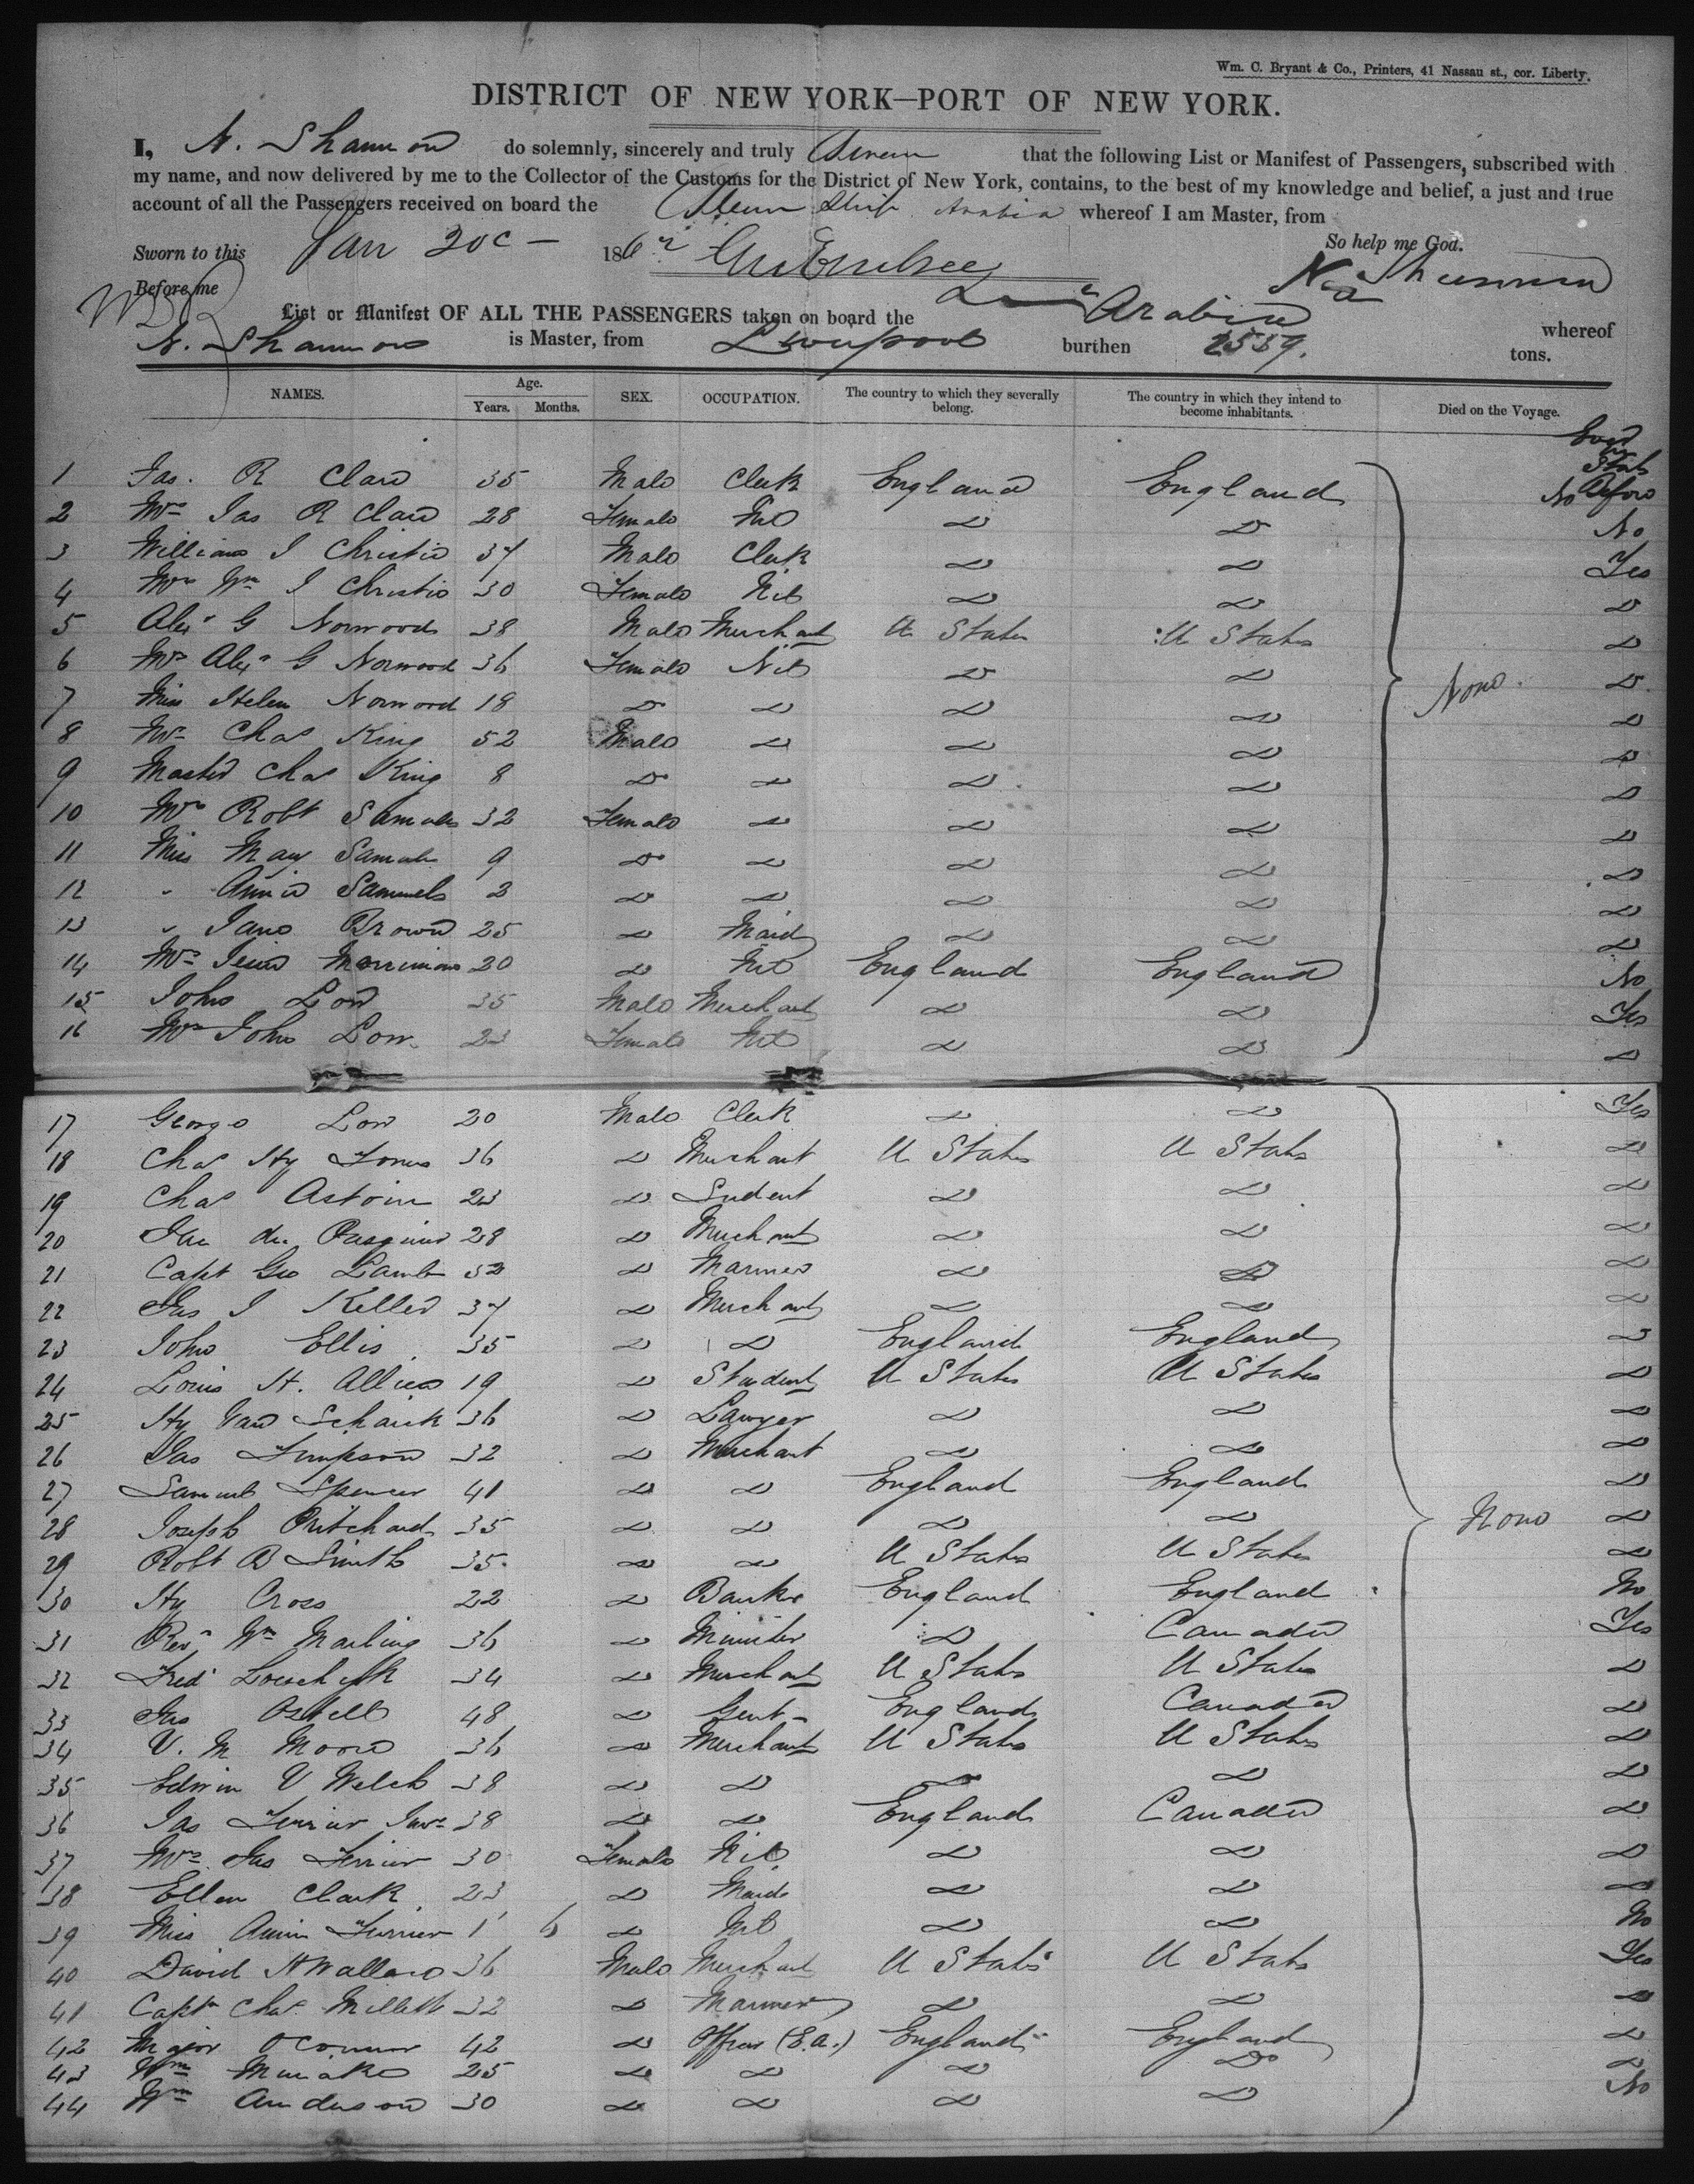 Wm. C. Bryant & Co., Printers, 41 Nassau st., cor. Liberty.
DISTRICT OF NEW YORK—PORT OF NEW YORK.
I, N. Shannon do solemnly, sincerely and truly Swear that the following List or Manifest of Passengers, subscribed with
my name, and now delivered by me to the Collector of the Customs for the District of New York, contains, to the best of my knowledge and belief, a just and true
account of all the Passengers received on board the Steam Ship Arabia whereof I am Master, from
Sworn to this Jan 20 1862 So help me God.
Before me N Shannon
List or Manifest OF ALL THE PASSENGERS taken on board the Arabia whereof
N. Shannon is Master, from Liverpool burthen 2559. tons.
NAMES. Age. Years. Months. SEX. OCCUPATION. The country to which they severally belong. The country in which they intend to become inhabitants. Died on the Voyage.
1 Jas. R Claw 35 Male Clerk England England No
2 Mrs Jas R Claw 28 Female Nil Do Do No
3 William J Christie 37 Male Clerk Do Do Yes
4 Mrs Wm J Christie 30 Female Nil Do Do Do
5 Alexr G Norwood 38 Male Merchant U States U States Do
6 Mrs Alexr G Norwood 36 Female Nil Do Do Do
None.
7 Miss Helen Norwood 18 Do Do Do Do Do
8 Mr Chas King 52 Male Do Do Do Do
9 Master Chas King 8 Do Do Do Do Do
10 Mrs Robt Samuels 32 Female Do Do Do Do
11 Miss May Samuels 9 Do Do Do Do Do
12 " Annie Samuels 2 Do Do Do Do Do
13 " Jane Brown 25 Do Maid Do Do Do
14 Mrs Merriman 20 Do Nil England England No
15 John Low 35 Male Merchant Do Do Yes
16 Mrs John Low 23 Female Nil Do Do Do
17 George Low 20 Male Clerk Do Do Yes
18 Chas Hy Jones 36 Do Merchant U States U States Do
19 Chas Astoin 23 Do Student Do Do Do
20 du Pasquier 28 Do Merchant Do Do Do
21 Capt Geo Lamb 52 Do Mariner Do Do Do
22 Jas J Keller 37 Do Merchant Do Do Do
23 John Ellis 35 Do Do England England Do
24 Louis H. Allien 19 Do Student U States U States Do
25 Hy Van Schaick 36 Do Lawyer Do Do Do
26 Jas Simpson 32 Do Merchant Do Do Do
27 Samuel Spencer 41 Do Do England England Do
28 Joseph Pritchard 35 Do Do Do Do None Do
29 Robt B Smith 35 Do Do U States U States Do
30 Hy Cross 22 Do Banker England England No
31 Revd Wm Marling 36 Do Minister Do Canada Yes
32 Fred 34 Do Merchant U States U States Do
33 Jas Ostell 48 Do Gent England Canada Do
34 V. M Moore 36 Do Merchant U States U States Do
35 Edwin V Welch 38 Do Do Do Do Do
36 Jas Ferrier Junr 38 Do Do England Canada Do
37 Mrs Jas Ferrier 30 Female Nil Do Do Do
38 Ellen Clark 23 Do Maid Do Do Do
39 Miss Annie Ferrier 1 6 Do Nil Do Do No
40 David H Wallace 36 Male Merchant U States U States Yes
41 Captn Chas Millett 32 Do Mariner Do Do Do
42 Major O'Connor 42 Do Officer (E.A.) England England Do
43 Wm 25 Do Do Do Do Do
44 Wm Anderson 30 Do Do Do Do No